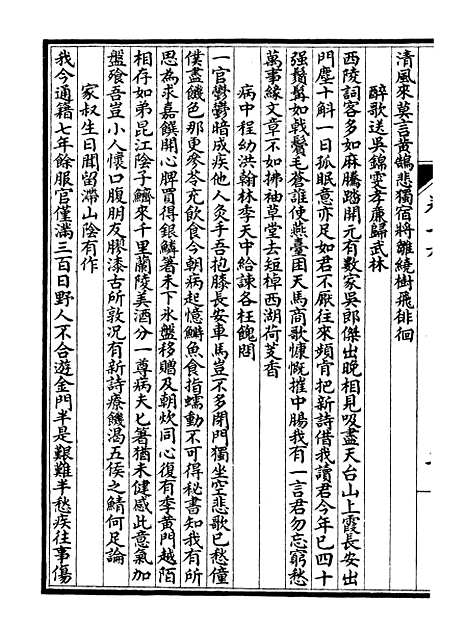 清風來莫言黄鵠悲獨宿將雛繞樹飛徘徊
醉歌送吳錦雯孝廉歸武林
西陵詞客多如麻騰踏開元有數家吳郎傑出晚相見吸盡天台山上霞長安出
門塵十斛一日孤眠意亦足如君不厭往來頻肯把新詩借我讀君今年已四十
强鬚髯如戟鬢毛蒼誰使燕臺困天馬商歌慷慨摧中腸我有一言君勿忘窮愁
萬事緣文章不如拂袖草堂去短棹西湖荷芰香
病中程幼洪翰林李天中給諫各枉餽問
一官鬱鬱暗成疾他人灸手吾抱膝長安車馬豈不多閉門獨坐空悲歌已愁僮
僕盡饑色那更參苓充飲食今朝病起憶鯿魚食指蠕動不可得秘書知我有所
思為求嘉饌開心脾買得銀鱗箸未下氷盤移贈及朝炊同心復有李黄門越陌
相存如弟昆江陰子鱭來千里蘭陵美酒分一尊病夫匕箸猶未健感此意氣加
盤飱吾豈小人懷口腹朋友膠漆古所敦况有新詩療饑渴五侯之鯖何足論
家叔生日聞留滯山陰有作
我今通籍七年餘服官僅滿三百日野人不合遊金門半是艱難半愁疾往事傷